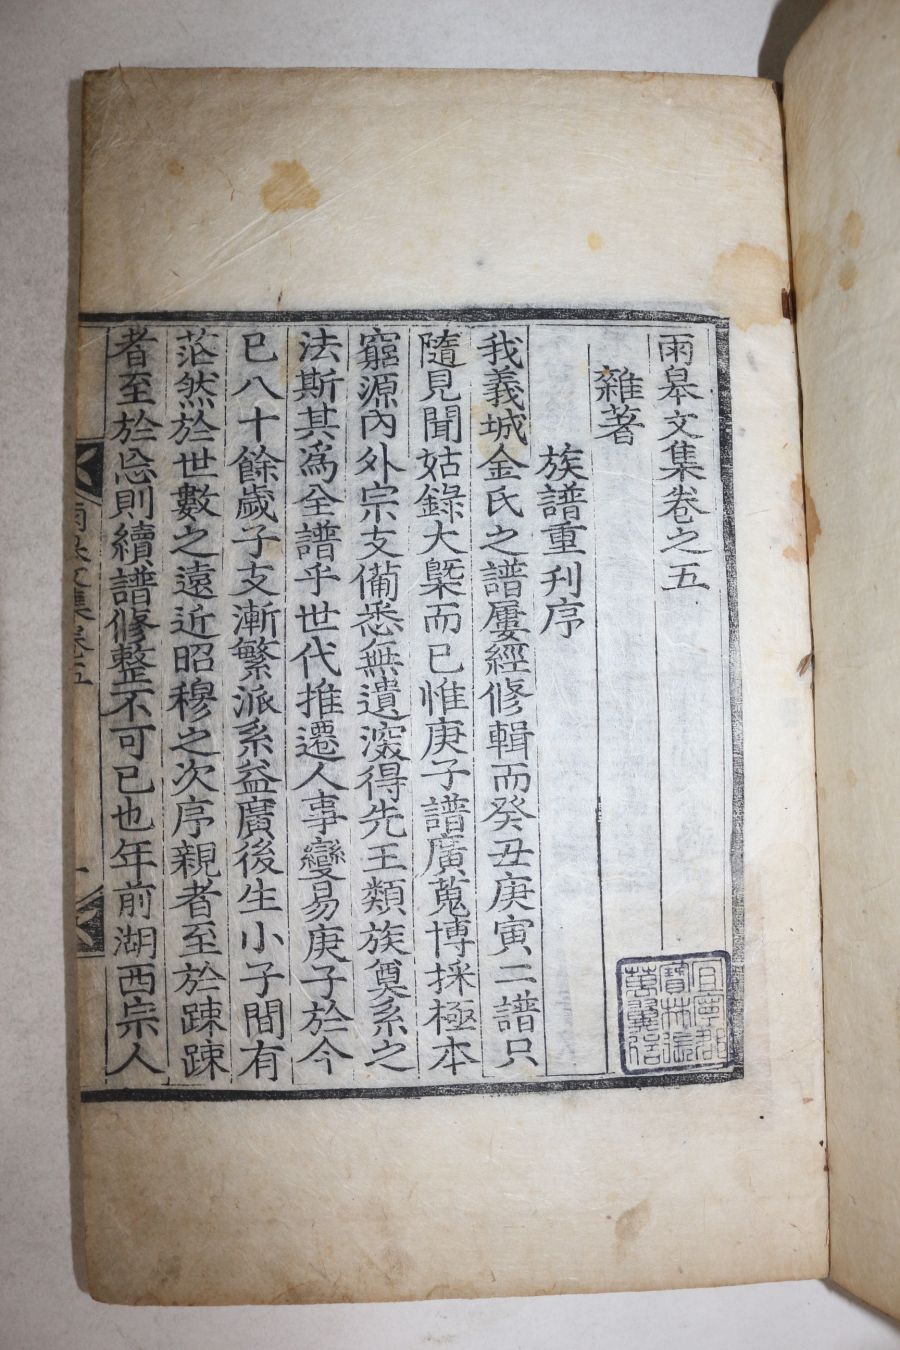 雨皋文集卷之五
雜著
族譜重刋序
我義城金氏之譜屢經修輯而癸丑庚寅二譜只
隨見聞姑錄大槩而已惟庚子譜廣蒐博採極本
窮源內外宗支備悉無遺深得先王類族奠系之
法斯其爲全譜乎世代推遷人事變易庚子於今
已八十餘歲子支漸繁派系益廣後生小子間有
茫然於世數之遠近昭穆之次序親者至於踈踈
者至於忘則續譜修整不可已也年前湖西宗人
雨皋文集卷五